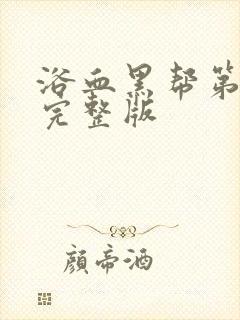 浴血黑帮第
完整版
顏帝酒